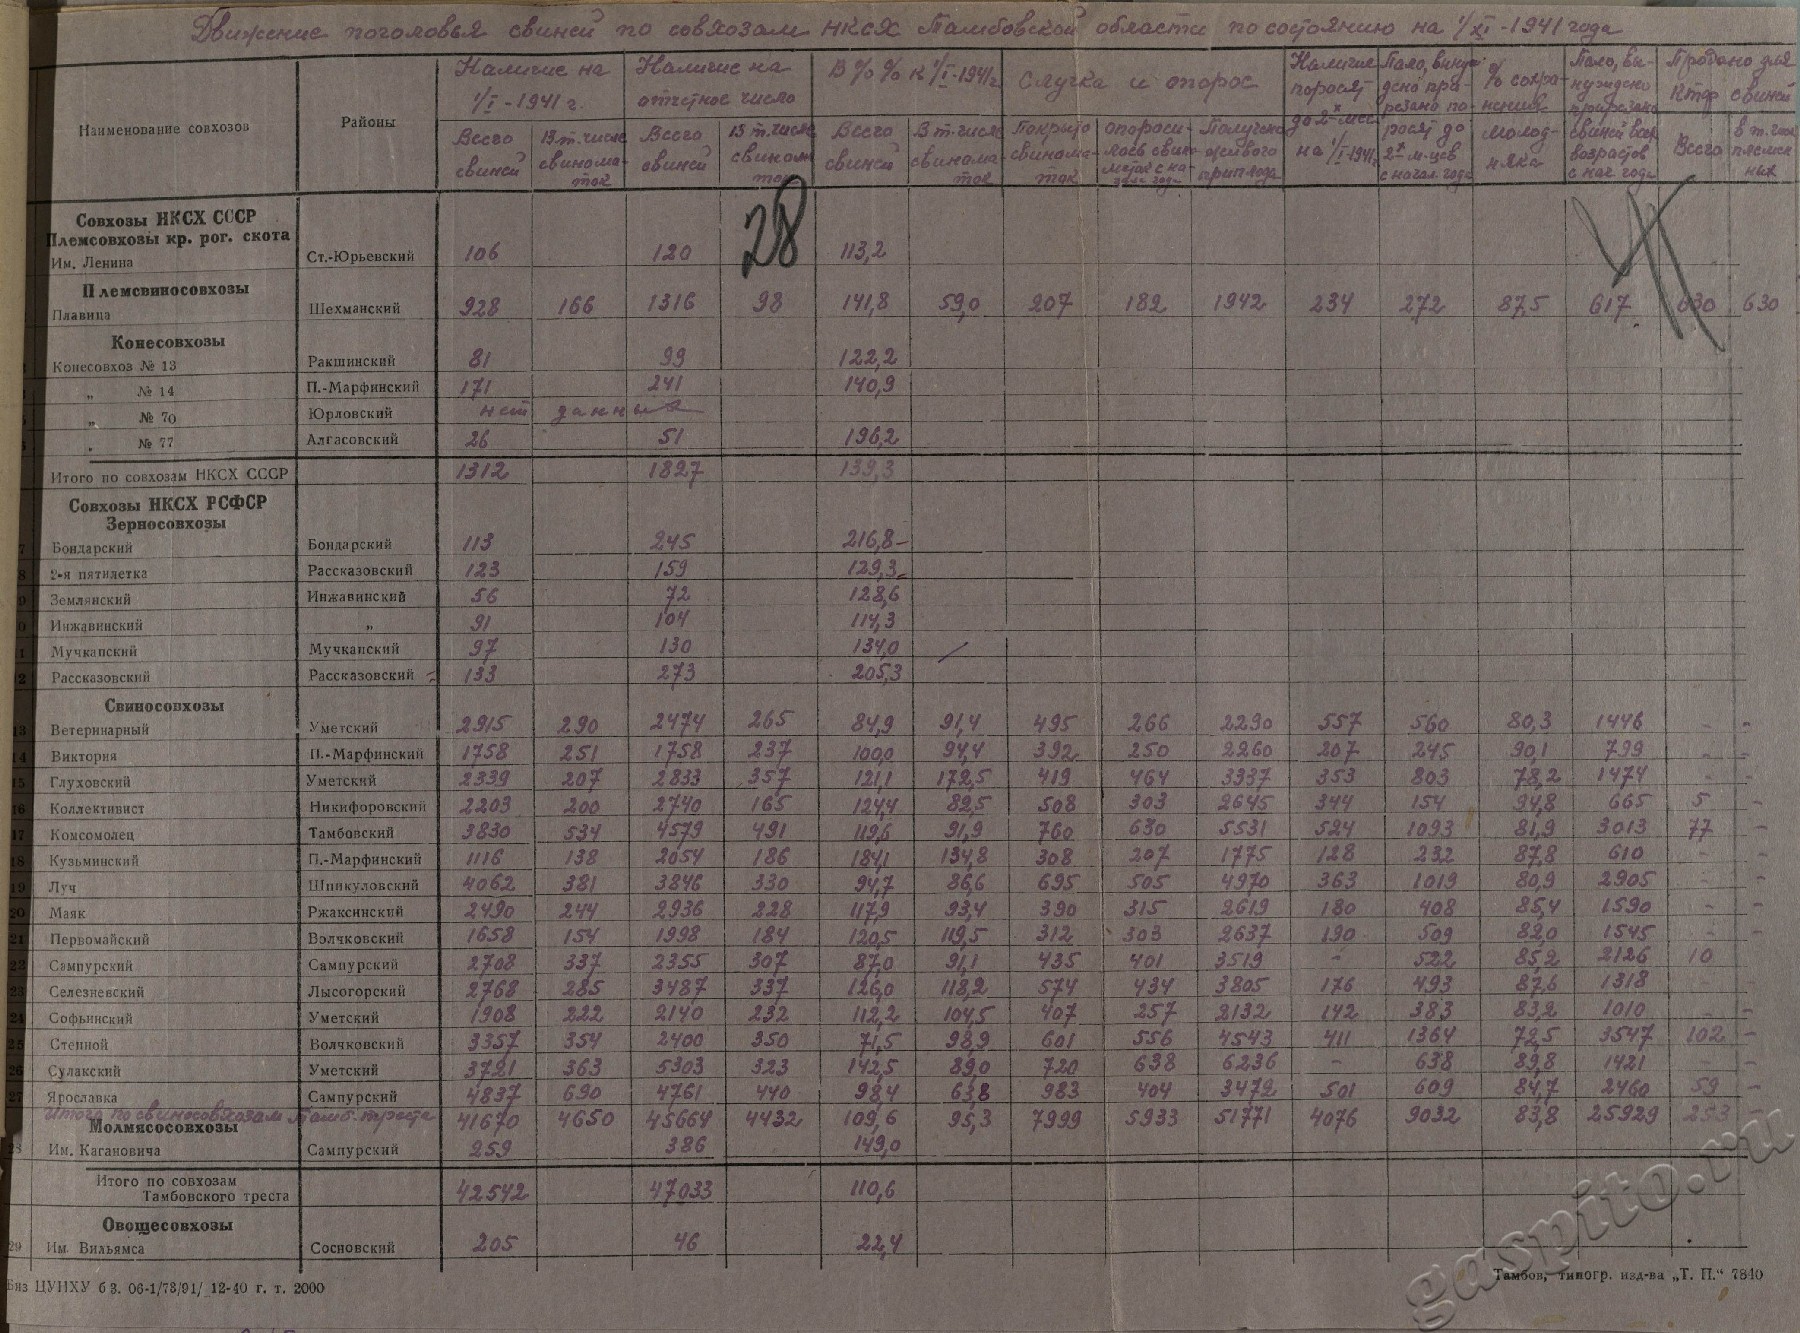 Движение поголовья свиней по совхозам НКСХ Тамбовской области по состоянию на 1/XI-1941 года
Наименование совхозов Районы Наличие на 1/I-1941 г. Наличие на отчетное число В % % к 1/I-1941 г. Случка и опорос Наличие поросят до 2х мес. на 1/I-1941г. Пало, вынуждено прирезано поросят до 2х м-цев с начал. года % сохранения молодняка Пало, вынуждено прирезано свиней всех возрастов с нач. года Продано для свиней
Всего свиней В т. числе свиноматок Всего свиней В т. числе свиноматок Всего свиней В т. числе свиноматок Покрыто свиноматок Опоросилось свиноматок с начала года Получено живого приплода Всего в т. числе племенных
Совхозы НКСХ СССР
Племсовхозы кр. рог. скота
Им. Ленина Ст.-Юрьевский 106 120 28 113,2
Племсвиносовхозы
Плавица Шехманский 928 166 1316 98 141,8 59,0 207 182 1942 234 272 87,5 617 630 630
Конесовхозы
Конесовхоз № 13 Ракшинский 81 99 122,2
„ № 14 П.-Марфинский 171 241 140,9
„ № 70 Юрловский нет данных
„ № 77 Алгасовский 26 51 196,2
Итого по совхозам НКСХ СССР 1312 1827 139,3
Совхозы НКСХ РСФСР
Зерносовхозы
7 Бондарский Бондарский 113 245 216,8
8 2-я пятилетка Рассказовский 123 159 129,3
9 Землянский Инжавинский 56 72 128,6
0 Инжавинский „ 91 104 114,3
1 Мучкапский Мучкапский 97 130 134,0
12 Рассказовский Рассказовский 133 273 205,3
Свиносовхозы
13 Ветеринарный Уметский 2915 290 2474 265 84,9 91,4 495 266 2290 557 560 80,3 1446 - -
14 Виктория П.-Марфинский 1758 251 1758 237 100,0 94,4 392 250 2260 207 245 90,1 799 - -
15 Глуховский Уметский 2339 207 2833 357 121,1 172,5 419 464 3337 353 803 78,2 1474 - -
16 Коллективист Никифоровский 2203 200 2740 165 124,4 82,5 508 303 2645 344 154 94,8 665 5 -
17 Комсомолец Тамбовский 3830 534 4579 491 119,6 91,9 760 630 5531 524 1093 81,9 3013 77 -
18 Кузьминский П.-Марфинский 1116 138 2054 186 184,1 134,8 308 207 1775 128 232 87,8 610 - -
19 Луч Шпикуловский 4062 381 3846 330 94,7 86,6 695 505 4970 363 1019 80,9 2905 - -
20 Маяк Ржаксинский 2490 244 2936 228 117,9 93,4 390 315 2619 180 408 85,4 1590 - -
21 Первомайский Волчковский 1658 154 1998 184 120,5 119,5 312 303 2637 190 509 82,0 1545 - -
22 Сампурский Сампурский 2708 337 2355 307 87,0 91,1 435 401 3519 - 522 85,2 2126 10
23 Селезневский Лысогорский 2768 285 3487 337 126,0 118,2 574 434 3805 176 493 87,6 1318 - -
24 Софьинский Уметский 1908 222 2140 232 112,2 104,5 407 257 2132 142 383 83,2 1010 - -
25 Степной Волчковский 3357 354 2400 350 71,5 98,9 601 556 4543 411 1364 72,5 3547 102 -
26 Сулакский Уметский 3721 363 5303 323 142,5 89,0 720 638 6236 - 638 89,8 1421 - -
27 Ярославка Сампурский 4837 690 4761 440 98,4 63,8 983 404 3472 501 609 84,7 2460 59 -
Итого по свиносовхозам тамб. треста 41670 4650 45664 4432 109,6 95,3 7999 5933 51771 4076 9032 83,8 25929 253
Молмясосовхозы
28 Им. Кагановича Сампурский 259 386 149,0
Итого по совхозам
Тамбовского треста 42542 47033 110,6
Овощесовхозы
29 Им. Вильямса Сосновский 205 46 22,4
Биз ЦУНХУ б З. 06-1/73/91/ 12-40 г. т. 2000
Тамбов, типогр. изд-ва „Т. П.“ 7840
gaspito.ru